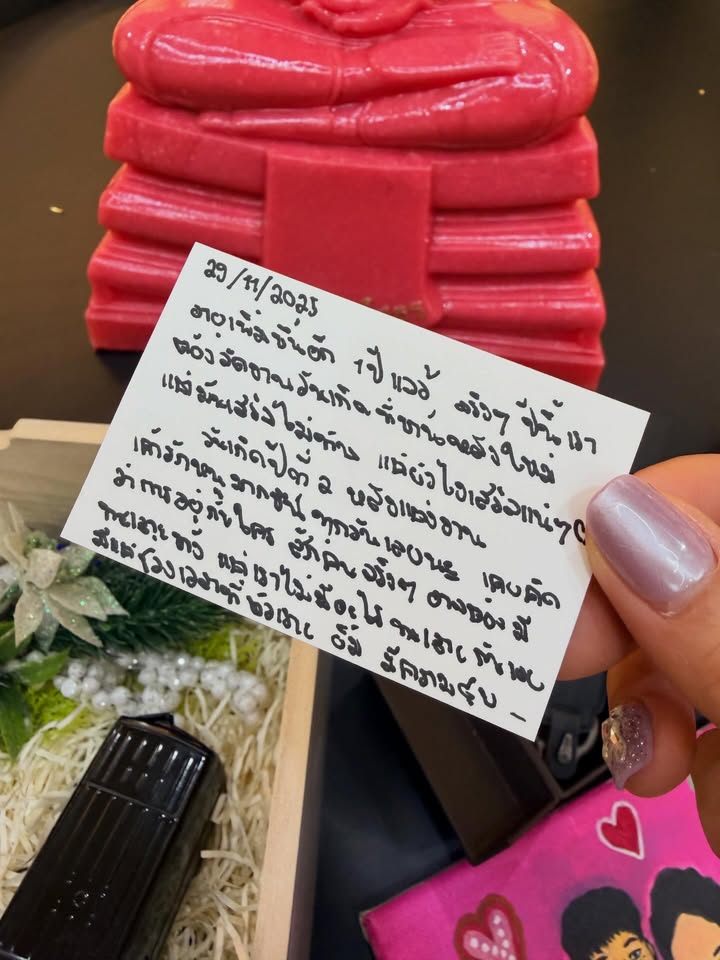 29/11/2025
อายุเพิ่มขึ้นอีก 1 ปี แล้ว จริงๆ ปีนี้เรา
ต้องจัดงานวันเกิดที่บ้านหลังใหม่
แต่บ้านเสร็จไม่ทัน แต่ยังไงเสร็จแน่ๆ
วันเกิดปีที่ 2 หลังแต่งงาน
เค้ารักหนูมากขึ้นทุกวันเลยนะ เคยคิด
ว่าการอยู่กับใคร สักคนจริงๆ อาจต้องมี
ทะเลาะบ้าง แต่เราไม่มีอะไร ทะเลาะ กันเลย
มีแต่ช่วงเวลาที่หัวเราะ ยิ้ม มีความสุข -